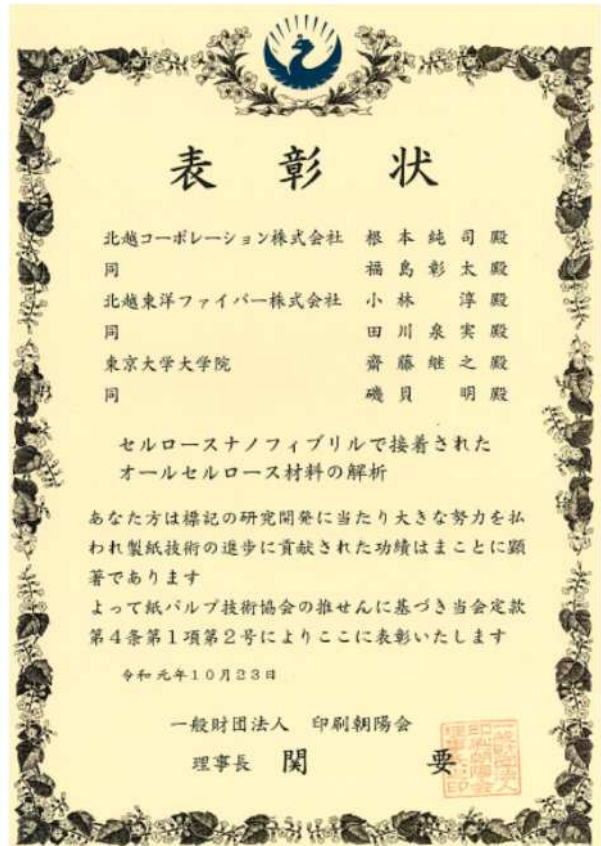 表彰状
北越コーポレーション株式会社 根本純司殿
同 福島彰太殿
北越東洋ファイバー株式会社 小林淳殿
同 田川泉実殿
東京大学大学院 齋藤継之殿
同 磯貝明殿
セルロースナノフィブリルで接着された
オールセルロース材料の解析
あなた方は標記の研究開発に当たり大きな努力を払
われ製紙技術の進歩に貢献された功績はまことに顕
著であります
よって紙パルプ技術協会の推せんに基づき当会定款
第4条第1項第2号によりここに表彰いたします
令和元年10月23日
一般財団法人 印刷朝陽会
理事長 関 要
一般財団法人
印刷朝陽会
理事長之印